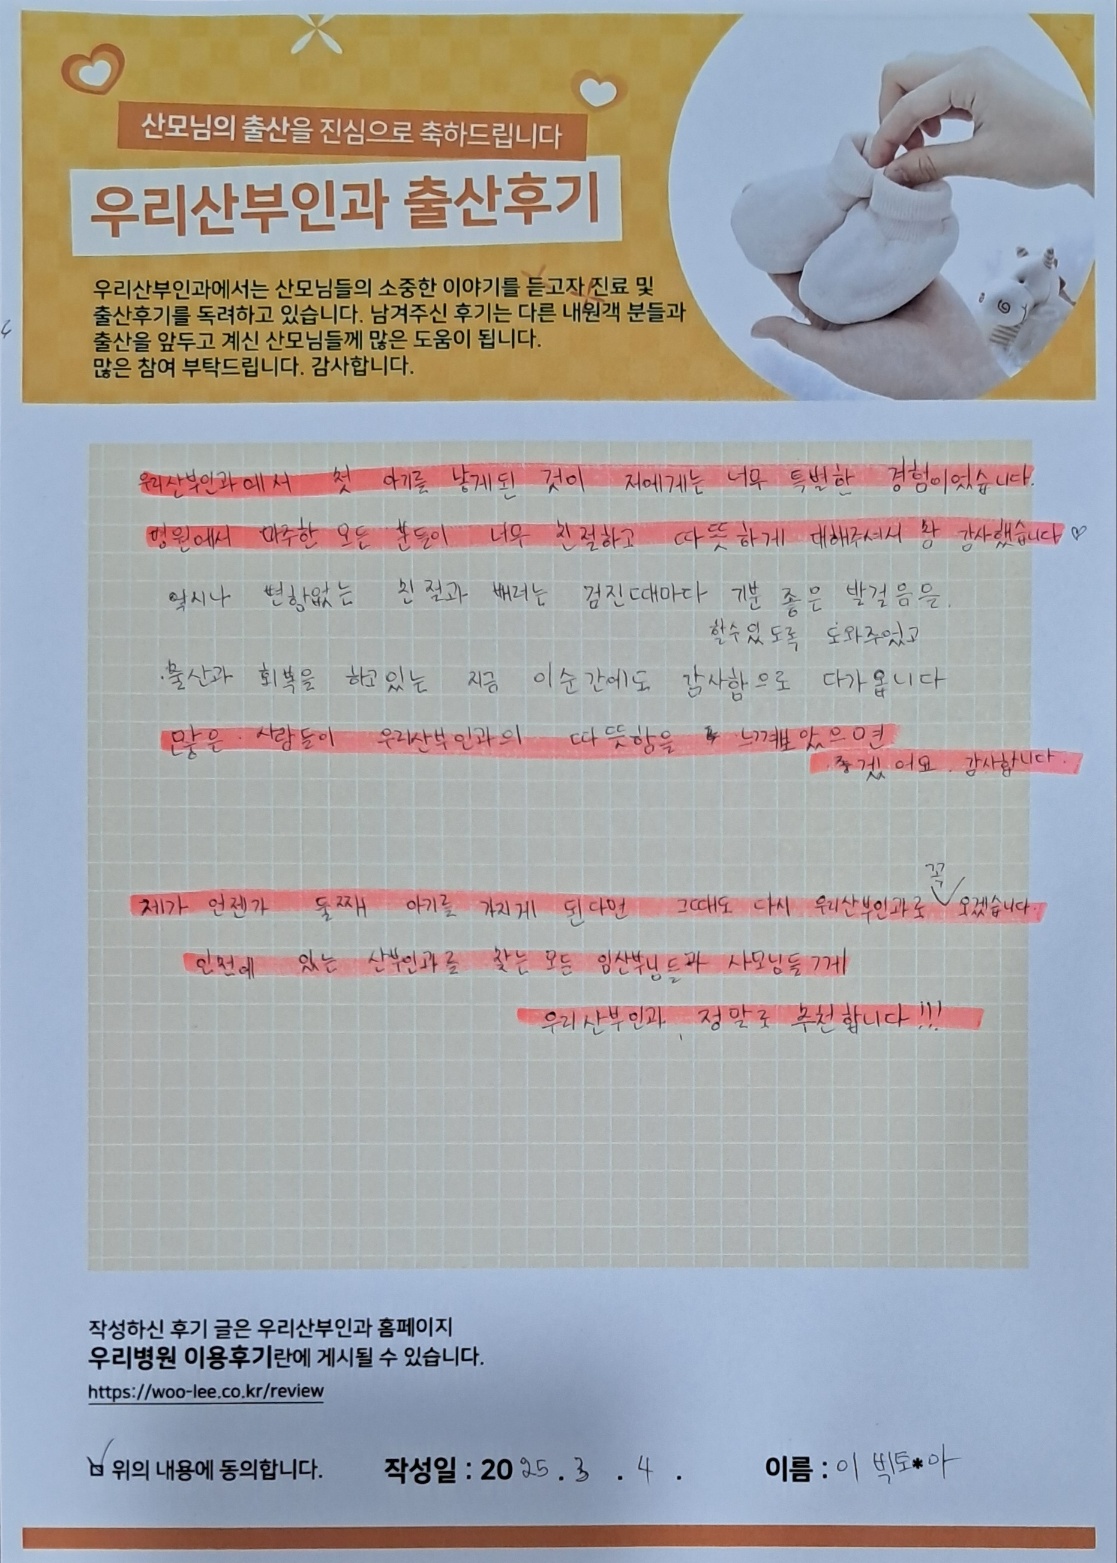 산모님의 출산을 진심으로 축하드립니다
우리산부인과 출산후기
우리산부인과에서는 산모님들의 소중한 이야기를 듣고자 진료 및
출산후기를 독려하고 있습니다. 남겨주신 후기는 다른 내원객 분들과
출산을 앞두고 계신 산모님들께 많은 도움이 됩니다.
많은 참여 부탁드립니다. 감사합니다.
우리산부인과에서 첫 아기를 낳게된 것이 저에게는 너무 특별한 경험이었습니다.
병원에서 마주한 모든 분들이 너무 친절하고 따뜻하게 대해주셔서 감사했습니다♡
역시나 변함없는 친절과 배려는 검진때마다 기분 좋은 발걸음을
할수있도록 도와주었고
출산과 회복을 하고있는 지금 이순간에도 감사함으로 다가옵니다
많은 사람들이 우리산부인과의 따뜻함을 느껴보았으면
좋겠어요. 감사합니다.
제가 언젠가 둘째 아기를 가지게 된다면 그때도 다시 우리산부인과로 꼭 오겠습니다.
인천에 있는 산부인과를 찾는 모든 임산부님들과 사모님들께
우리산부인과, 정말로 추천합니다!!!
작성하신 후기 글은 우리산부인과 홈페이지
우리병원 이용후기란에 게시될 수 있습니다.
https://woo-lee.co.kr/review
위의 내용에 동의합니다. 작성일 : 2025.3.4. 이름 : 이